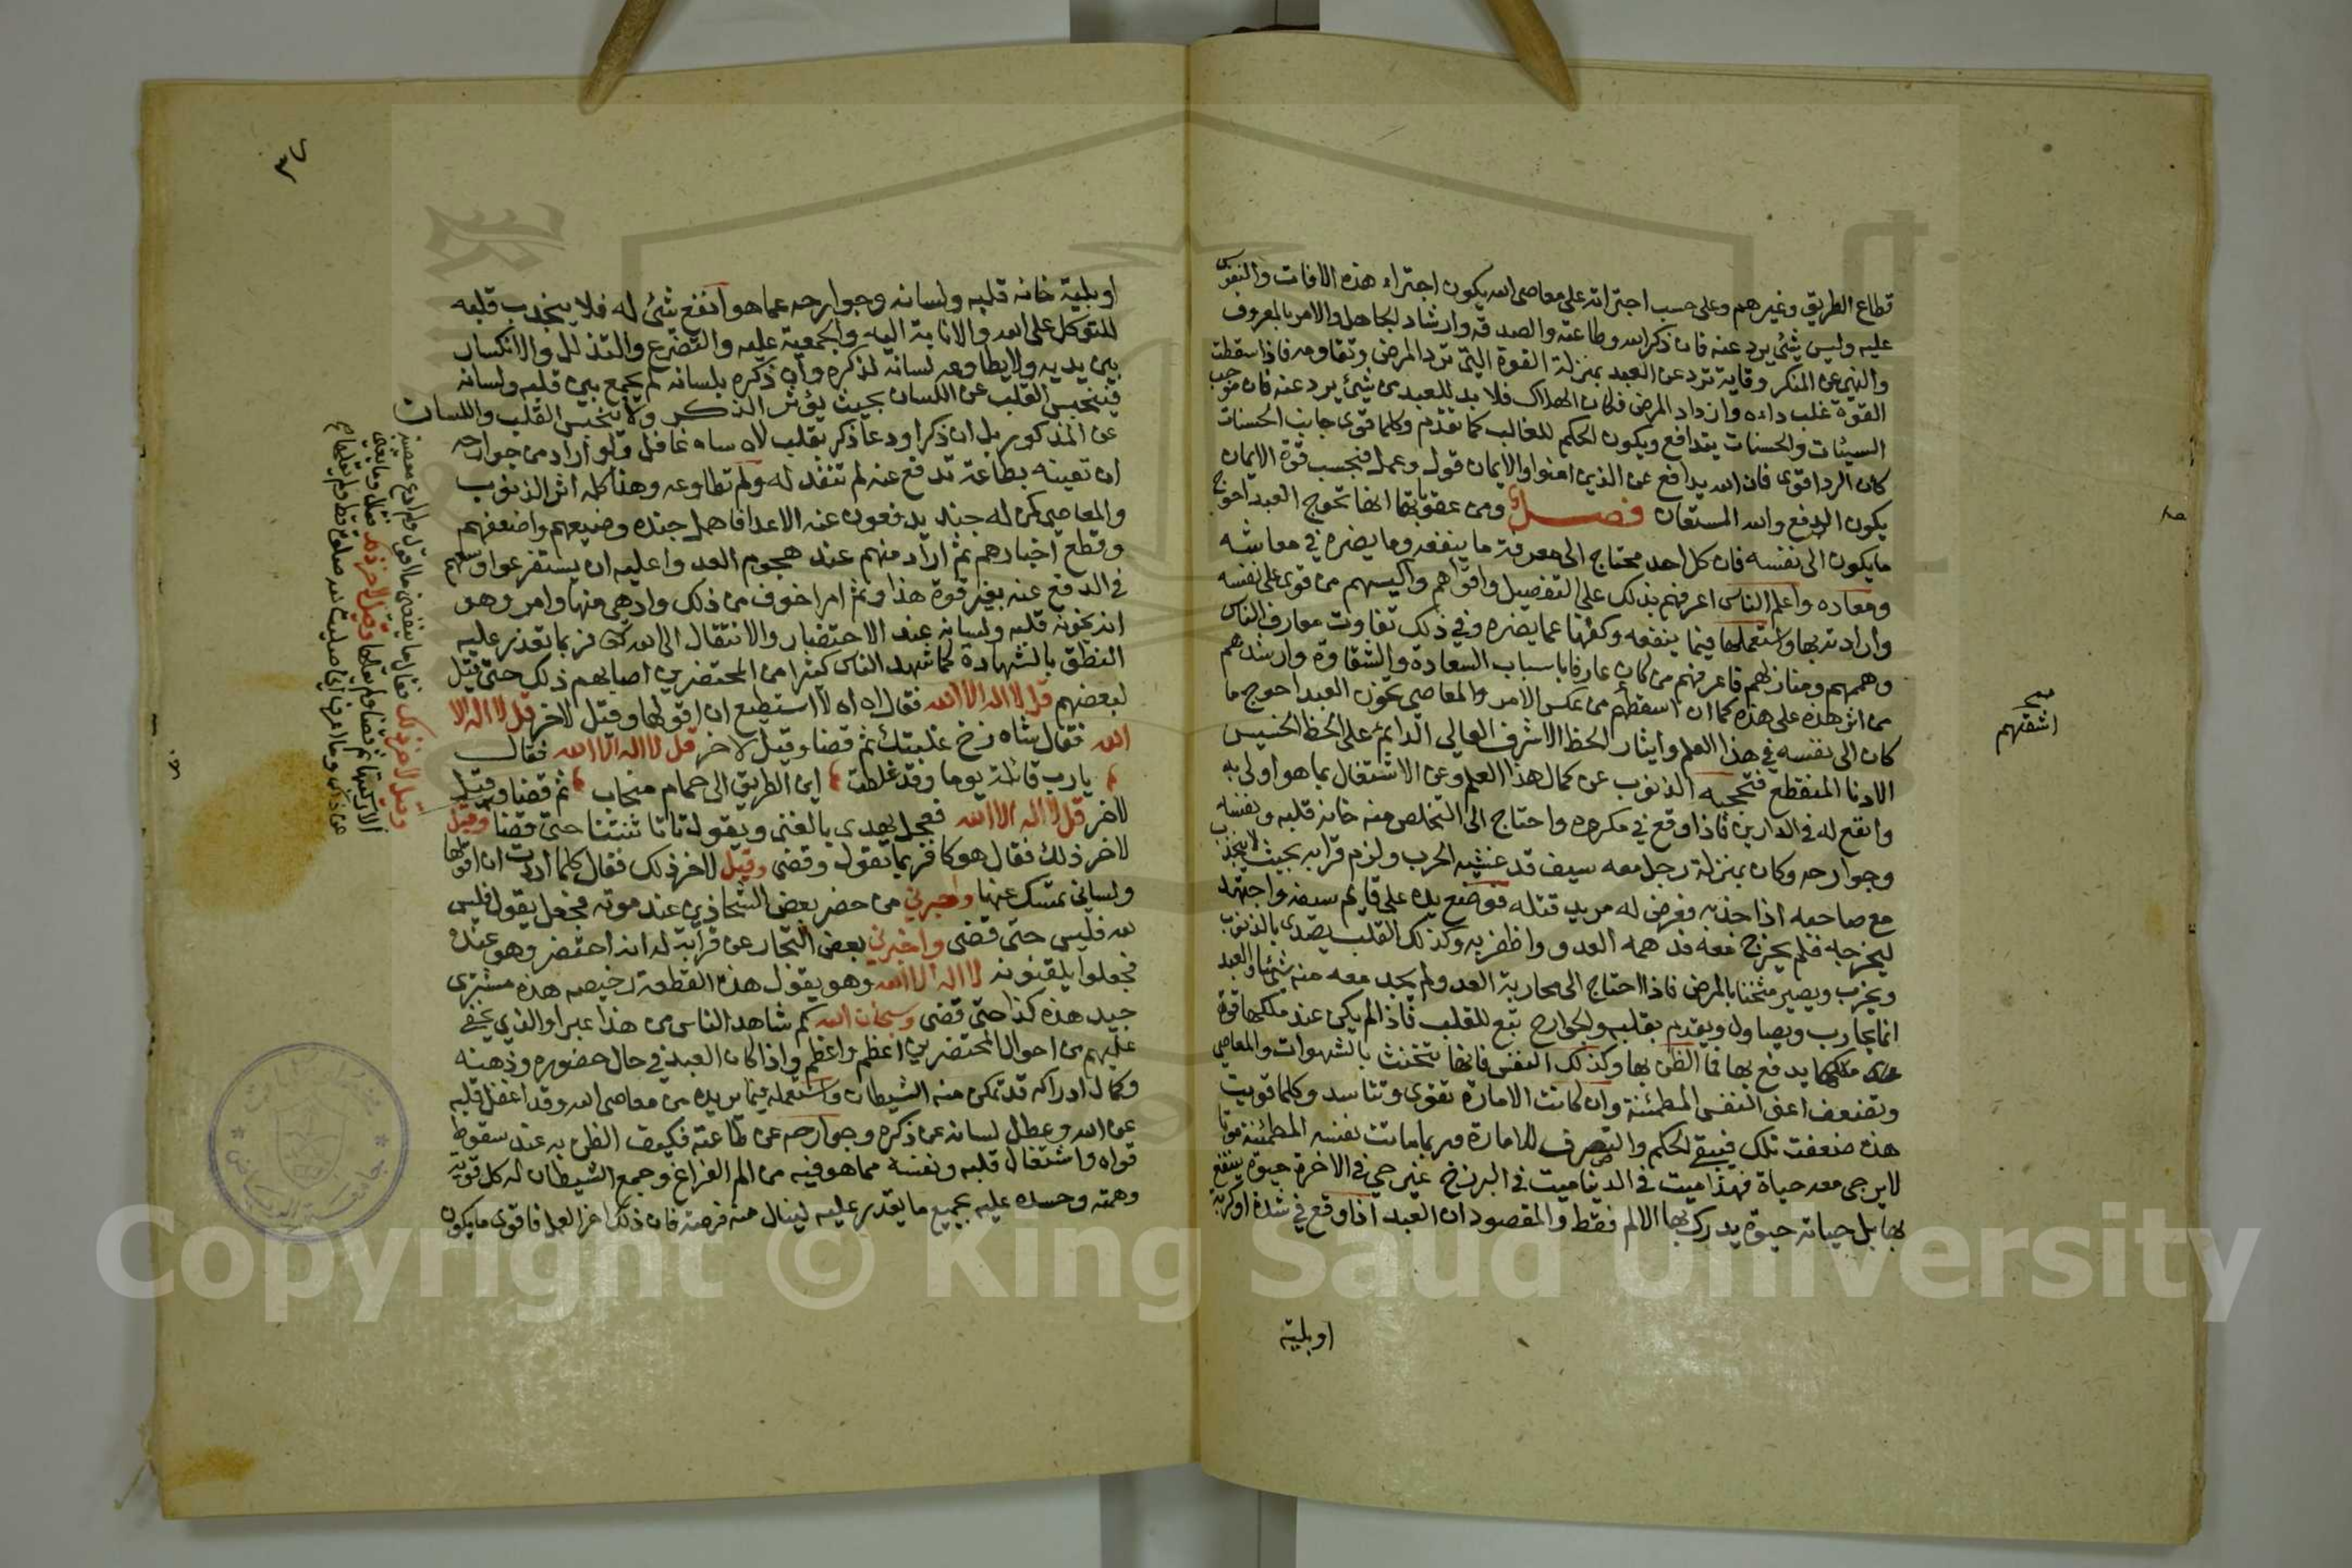 قطاع الطريق وغيرهم وعلى حسب اجترائه على معاصى الله يكون اجتراء هذه الافات والنفوس
عليه وليس شئ يرد عنه فان ذكر الله وطاعته والصدقه وارشاد الجاهل والامر بالمعروف
والنهى عن المنكر وقاية ترد عن العبد بمنزلة القوة التى ترد المرض وتقاومه فاذا سقطت
القوة غلب داءه وازداد المرض فكان الهلاك فلا بد للعبد من شئ يرد عنه فان موجب
السيئات والحسنات يتدافع ويكون الحكم للغالب كما تقدم وكلما قوى جانب الحسنات
كان الرد اقوى فان الله يدافع عن الذين امنوا والايمان قول وعمل فبحسب قوة الايمان
يكون الدفع والله المستعان فصل ومن عقوباتها انها تحوج العبد احوج
ما يكون الى نفسه فان كل احد محتاج الى معرفة ما ينفعه وما يضره في معاشه
ومعاده واعلم الناس اعرفهم بذلك على التفصيل واقواهم واكيسهم من قوى على نفسه
وارادته بها واستعملها فيما ينفعه وكفها عما يضره وفي ذلك تفاوت معارف الناس
وهممهم ومنازلهم فاعرفهم من كان عارفا باسباب السعادة والشقاوة وارشدهم
من اثر هذه على هذه كما ان اسقطهم من عكس الامر والمعاصى تخون العبد احوج ما
كان الى نفسه في هذا العلم وايثار الحظ الاشرف العالى الدائم على الحظ الخسيس
الادنا المنقطع فتحجبه الذنوب عن كمال هذا العلم وعن الاشتغال بما هو اولى به
وانفع له في الدارين فاذا وقع في مكروه واحتاج الى التخلص منه خانه قلبه ونفسه
وجوارحه وكان بمنزلة رجل معه سيف قد غشيه الحرب ولزم قرابه بحيث لا ينجذب
مع صاحبه اذا جذبه فعرض له مريد قتله فوضع يده على قايم سيفه واجتهد
ليخرجه فلم يخرج معه فدهمه العدو واظفر به وكذلك القلب يصدى بالذنوب
ويخرب ويصير مثخنا بالمرض فاذا احتاج الى محاربة العدو لم يجد معه منه شيئا والعبد
انما يحارب ويصاول ويقدم بقلبه والجوارح تبع للقلب فاذا لم يكن عند ملكها قوة
يدفع بها فما الظن بها وكذلك النفس فانها تتخنث بالشهوات والمعاصى
وتضعف اعنى النفس المطمئنة وان كانت الامارة تقوى وتتاسد وكلما قويت
هذه ضعفت تلك فيبقى الحكم والتصرف للامارة وربما ماتت نفسه المطمئنة موتا
لا يرجى معه حياة فهذا ميت في الدنيا ميت في البرزخ غير حي في الاخرة حيوة ينتفع
بها بل حياته حيوة يدرك بها الالم فقط والمقصود ان العبد اذا وقع في شدة او كربة
اوبلية
اشقهم
٣٧
او بلية خانه قلبه ولسانه وجوارحه عما هو انفع شئ له فلا ينجذب قلبه
للتوكل على الله والانابة اليه والجمعية عليه والتضرع والتذلل والانكسار
بين يديه ولا يطاوعه لسانه لذكره وان ذكره بلسانه لم يجمع بين قلبه ولسانه
فينحبس القلب عن اللسان بحيث يؤثر الذكر ولا ينحبس القلب واللسان
عن المذكور بل ان ذكر او دعا ذكر بقلب لاه ساه غافل ولو اراد من جوارحه
ان تعينه بطاعة تدفع عنه لم تنقد له ولم تطاوعه وهذا كله اثر الذنوب
والمعاصى كمن له جند يدفعون عنه الاعدا فاهمل جنده وضيعهم واضعفهم
وقطع اخبارهم ثم اراد منهم عند هجوم العدو عليه ان يستفرغوا وسعهم
في الدفع عنه بغير قوة هذا وثم امر اخوف من ذلك وادهى منها وامر وهو
ان يخونه قلبه ولسانه عند الاحتضار والانتقال الى الله فربما تعذر عليه
النطق بالشهادة كما شهد الناس كثيرا من المحتضرين اصابهم ذلك حتى قيل
لبعضهم قل لا اله الا الله فقال اه اه لا استطيع ان اقولها وقيل لاخر قل لا اله الا
الله فقال شاه رخ غلبتك ثم قضا وقيل لاخر قل لا اله الا الله فقال
يارب قائلة يوما وقد غلطت اين الطريق الى حمام منجاب ثم قضا وقيل
لاخر قل لا اله الا الله فجعل يهدى بالغنى ويقول تاتا تنتنا حتى قضا وقيل
لاخر ذلك فقال هو كافر بما تقول وقضى وقيل لاخر ذلك فقال كلما اردت ان اقولها
ولسانى يمسك عنها واخبرني من حضر بعض الشحاذين عند موته فجعل يقول فليس
لله فليس حتى قضى واخبرني بعض التجار عن قرابة له انه احتضر وهو عنده
فجعلوا يلقنونه لا اله الا الله وهو يقول هذه القطعة رخيصه هذه مشترى
جيد هذه كذا حتى قضى وسبحان الله كم شاهد الناس من هذا عبرا والذي يخفى
عليهم من احوال المحتضرين اعظم واعظم واذا كان العبد في حال حضوره وذهنه
وكمال ادراكه قد تمكن منه الشيطان واستعمله فيما يريده من معاصى الله وقد اغفل قلبه
عن الله وعطل لسانه عن ذكره وجوارحه عن طاعته فكيف الظن به عند سقوط
قواه واشتغال قلبه ونفسه مما هو فيه من الم الفراغ وجمع الشيطان له كل قوته
وهمته وحسده عليه بجميع ما يقدر عليه لينال منه فرصة فان ذلك اخر العمل فاقوى ما يكون
وقيل لاخر ذلك فقال ما ينفعنى ما تقول ولم ادع معصية
الا ركبتها ثم قضا ولم يقلها وقيل لاخر ذلك فقال وما يغنى
عنى ذلك وما اعرف انى صليت لله صلوة قط ولم يقلها
Copyright © King Saud University